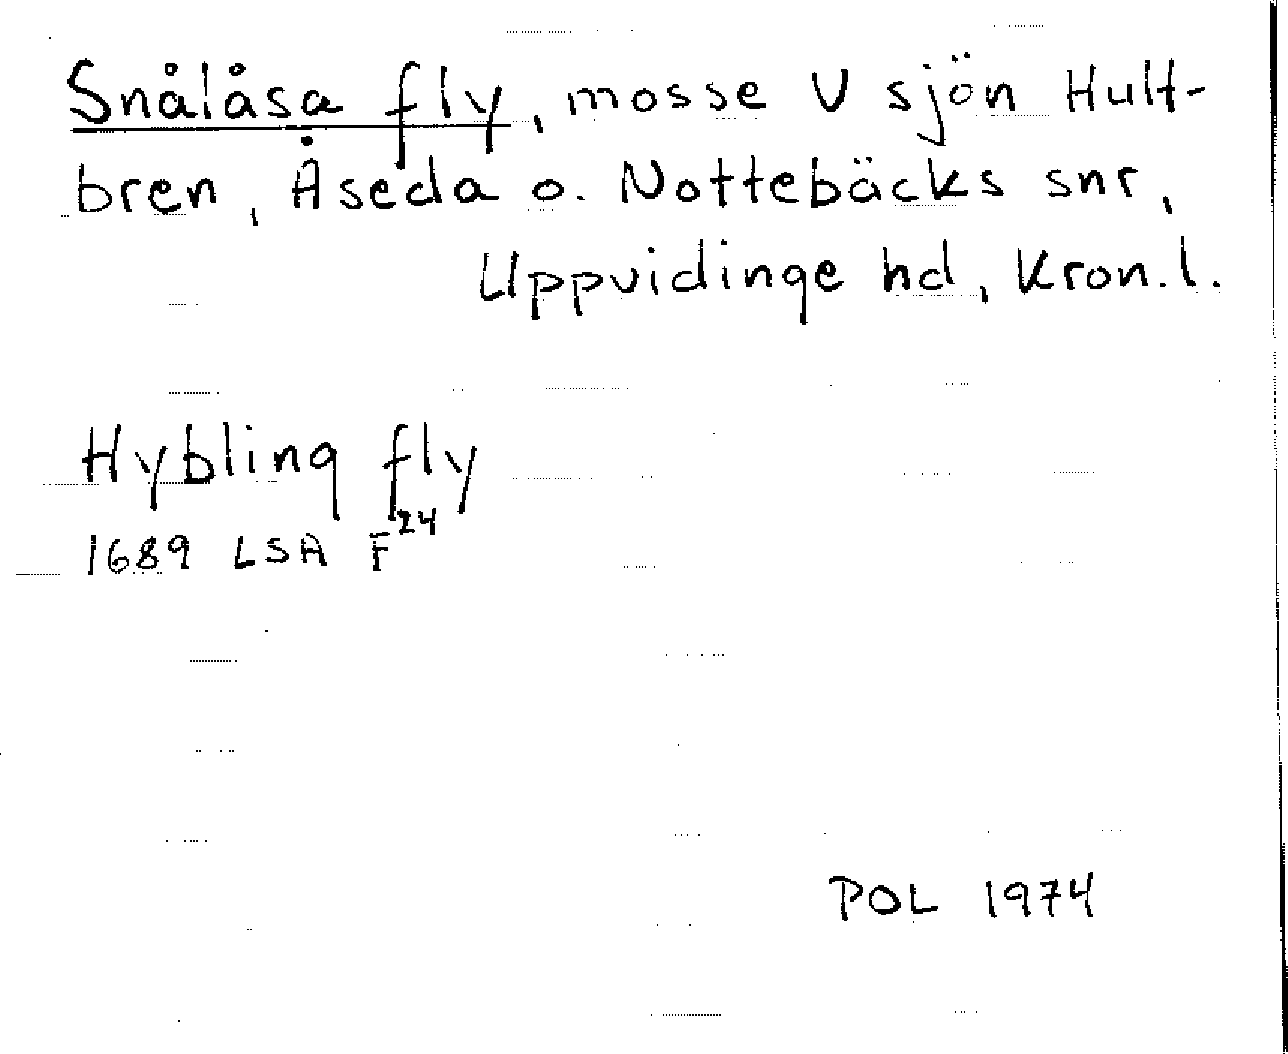 Snålåsa fly, mosse V sjön Hult-
bren, Åseda o. Nottebäcks snr,
Uppvidinge hd, Kron.l.
Hybling fly
1689 LSA F24
POL 1974